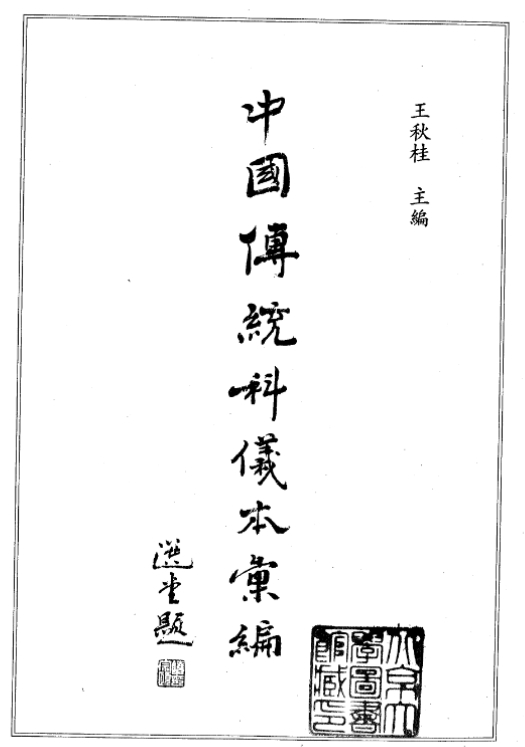 王秋桂 主編
中國傳統科儀本彙編
選堂題
北京大
學圖書
館藏印